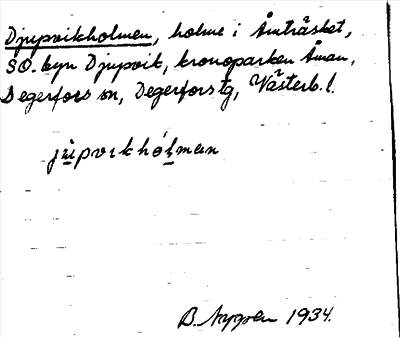 Djupvikholmen, holme i Åmträsket,
SO. byn Djupvik, kronoparken Åman,
Degerfors sn, Degerfors tg, Västerb. l.
jüpvɩkhólman
B. Nygren 1934.